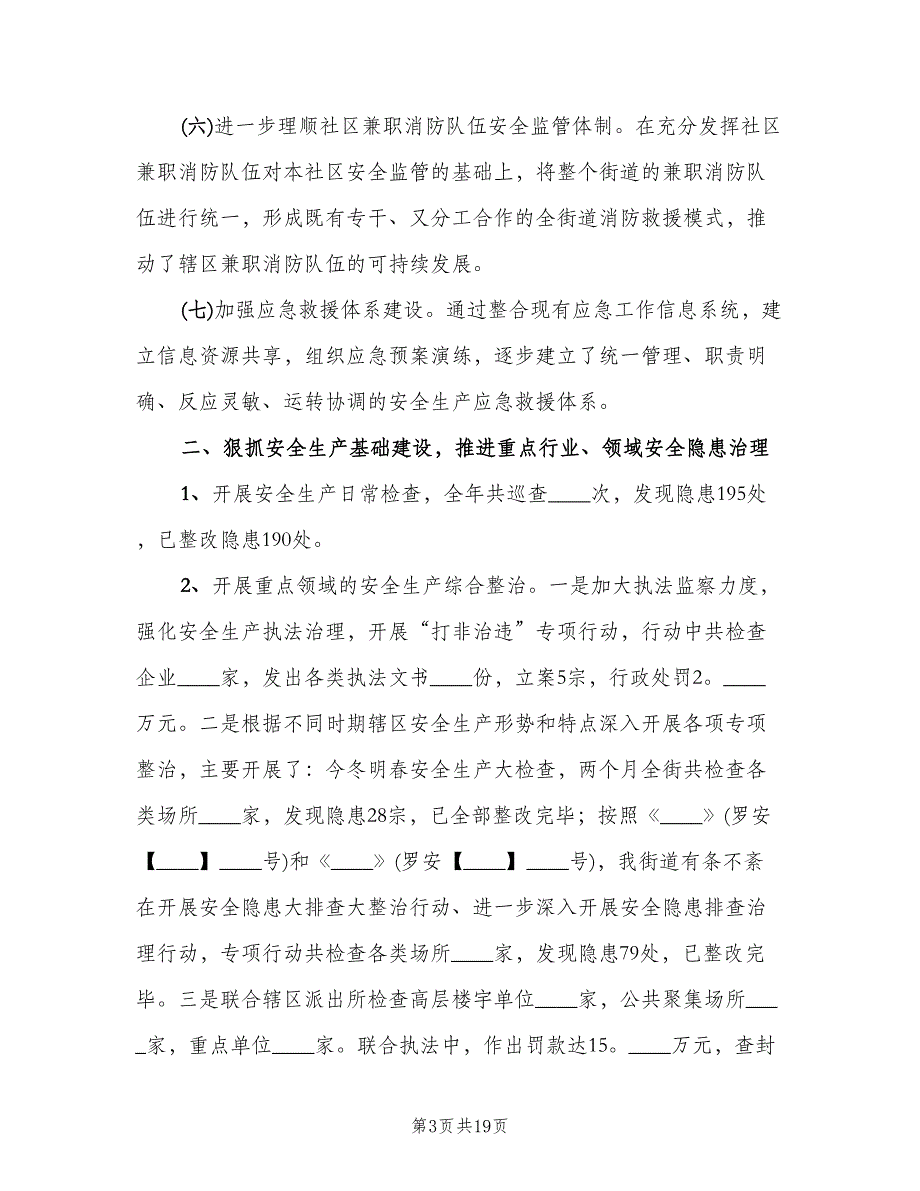 (六)进一步理顺社区兼职消防队伍安全监管体制。在充分发挥社区
兼职消防队伍对本社区安全监管的基础上，将整个街道的兼职消防队
伍进行统一，形成既有专干、又分工合作的全街道消防救援模式，推
动了辖区兼职消防队伍的可持续发展。
(七)加强应急救援体系建设。通过整合现有应急工作信息系统，建
立信息资源共享，组织应急预案演练，逐步建立了统一管理、职责明
确、反应灵敏、运转协调的安全生产应急救援体系。
二、狠抓安全生产基础建设，推进重点行业、领域安全隐患治理
1、开展安全生产日常检查，全年共巡查____次，发现隐患195处
，已整改隐患190处。
2、开展重点领域的安全生产综合整治。一是加大执法监察力度，
强化安全生产执法治理，开展“打非治违”专项行动，行动中共检查
企业____家，发出各类执法文书____份，立案5宗，行政处罚2。____
万元。二是根据不同时期辖区安全生产形势和特点深入开展各项专项
整治，主要开展了：今冬明春安全生产大检查，两个月全街共检查各
类场所____家，发现隐患28宗，已全部整改完毕；按照《____》(罗安
【____】____号)和《____》(罗安【____】____号)，我街道有条不紊
在开展安全隐患大排查大整治行动、进一步深入开展安全隐患排查治
理行动，专项行动共检查各类场所____家，发现隐患79处，已整改完
毕。三是联合辖区派出所检查高层楼宇单位____家，公共聚集场所___
_家，重点单位____家。联合执法中，作出罚款达15。____万元，查封
第3页共19页